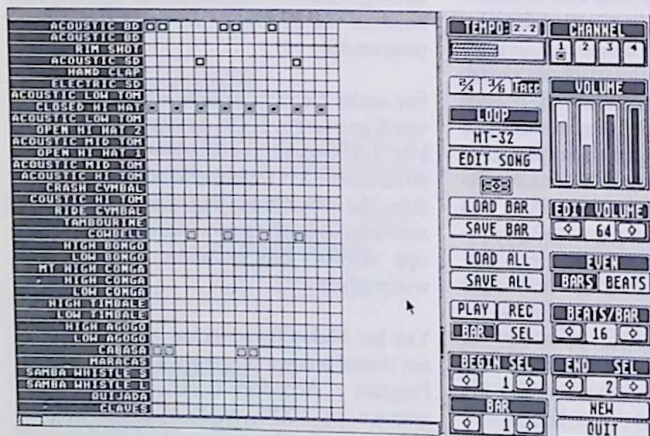 ACOUSTIC BD
ACOUSTIC BD
RIM SHOT
ACOUSTIC SD
HAND CLAP
ELECTRIC SD
ACOUSTIC LOW TOM
CLOSED HI HAT
ACOUSTIC LOW TOM
OPEN HI HAT 2
ACOUSTIC MID TOM
OPEN HI HAT 1
ACOUSTIC MID TOM
ACOUSTIC HI TOM
CRASH CYMBAL
COUSTIC HI TOM
RIDE CYMBAL
TAMBOURINE
COWBELL
HIGH BONGO
LOW BONGO
MT HIGH CONGA
HIGH CONGA
LOW CONGA
HIGH TIMBALE
LOW TIMBALE
HIGH AGOGO
LOW AGOGO
CABASA
MARACAS
SAMBA WHISTLE S
SAMBA WHISTLE L
QUIJADA
CLAVES
TEMPO: 2.2
CHANNEL
1 2 3 4
LOOP
MT-32
EDIT SONG
LOAD BAR
SAVE BAR
LOAD ALL
SAVE ALL
PLAY REC
BAR SEL
BEGIN SEL
1
BAR
1
VOLUME
EDIT VOLUME
64
EVEN
BARS BEATS
BEATS/BAR
16
END SEL
2
NEW
QUIT